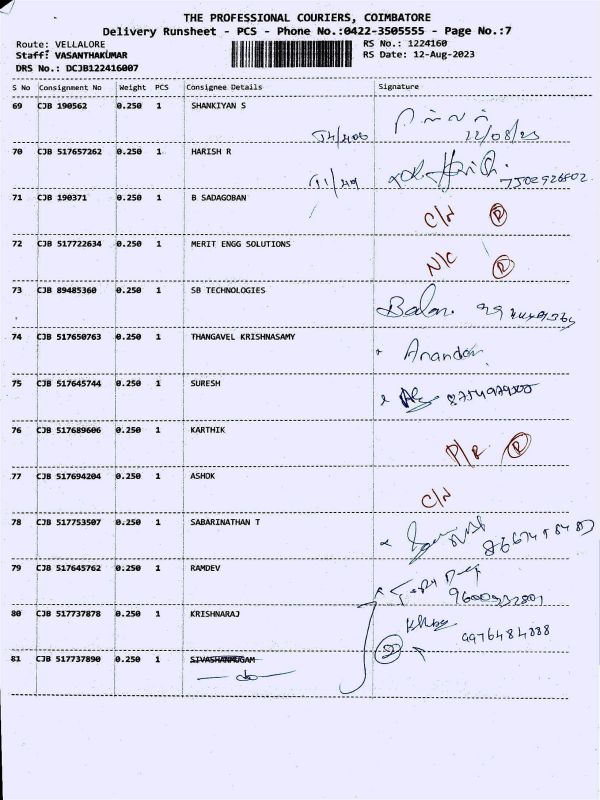 THE PROFESSIONAL COURIERS, COIMBATORE
Delivery Runsheet - PCS - Phone No.:0422-3505555 - Page No.:7
Route: VELLALORE RS No.: 1224160
Staff: VASANTHAKUMAR RS Date: 12-Aug-2023
DRS No.: DCJB122416007
S No Consignment No Weight PCS Consignee Details Signature
69 CJB 190562 0.250 1 SHANKIYAN S
12/08/23
70 CJB 517657262 0.250 1 HARISH R
71 CJB 190371 0.250 1 B SADAGOBAN C/N R
72 CJB 517722634 0.250 1 MERIT ENGG SOLUTIONS N/C R
73 CJB 89485360 0.250 1 SB TECHNOLOGIES Balan.
74 CJB 517650763 0.250 1 THANGAVEL KRISHNASAMY Anandan
75 CJB 517645744 0.250 1 SURESH
76 CJB 517689606 0.250 1 KARTHIK P/R R
77 CJB 517694204 0.250 1 ASHOK C/N
78 CJB 517753507 0.250 1 SABARINATHAN T
79 CJB 517645762 0.250 1 RAMDEV
80 CJB 517737878 0.250 1 KRISHNARAJ 9976484888
81 CJB 517737890 0.250 1 SIVASHANMUGAM
do